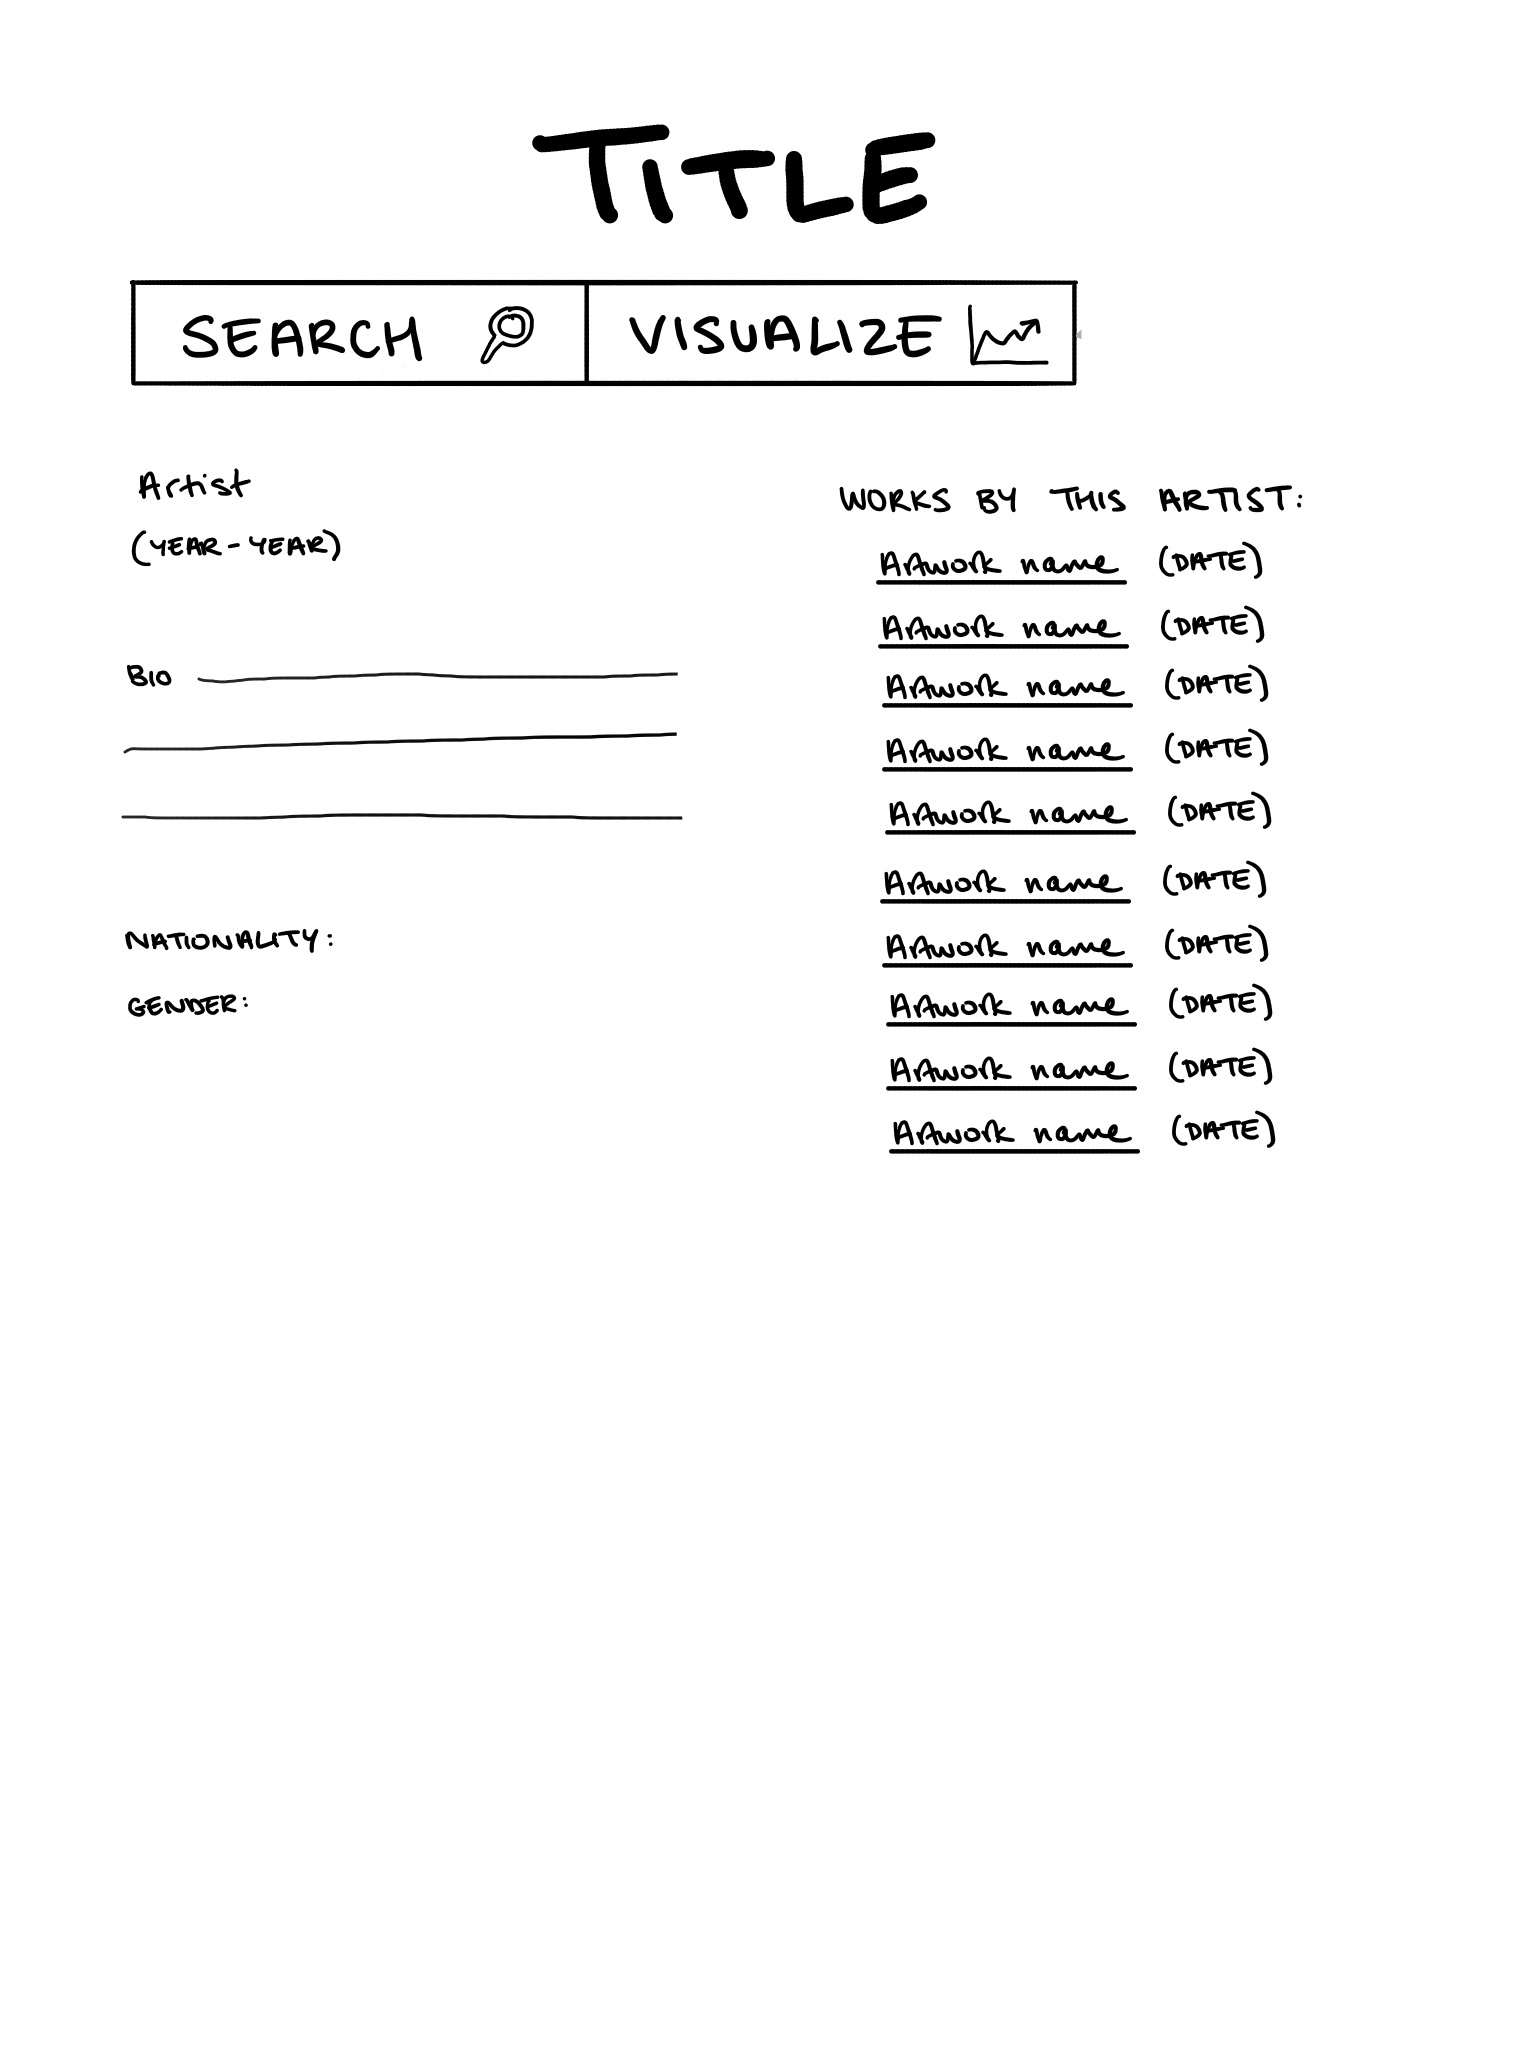 TITLE
SEARCH
VISUALIZE
Artist
(YEAR - YEAR)
BIO
NATIONALITY:
GENDER:
WORKS BY THIS ARTIST:
Artwork name (DATE)
Artwork name (DATE)
Artwork name (DATE)
Artwork name (DATE)
Artwork name (DATE)
Artwork name (DATE)
Artwork name (DATE)
Artwork name (DATE)
Artwork name (DATE)
Artwork name (DATE)